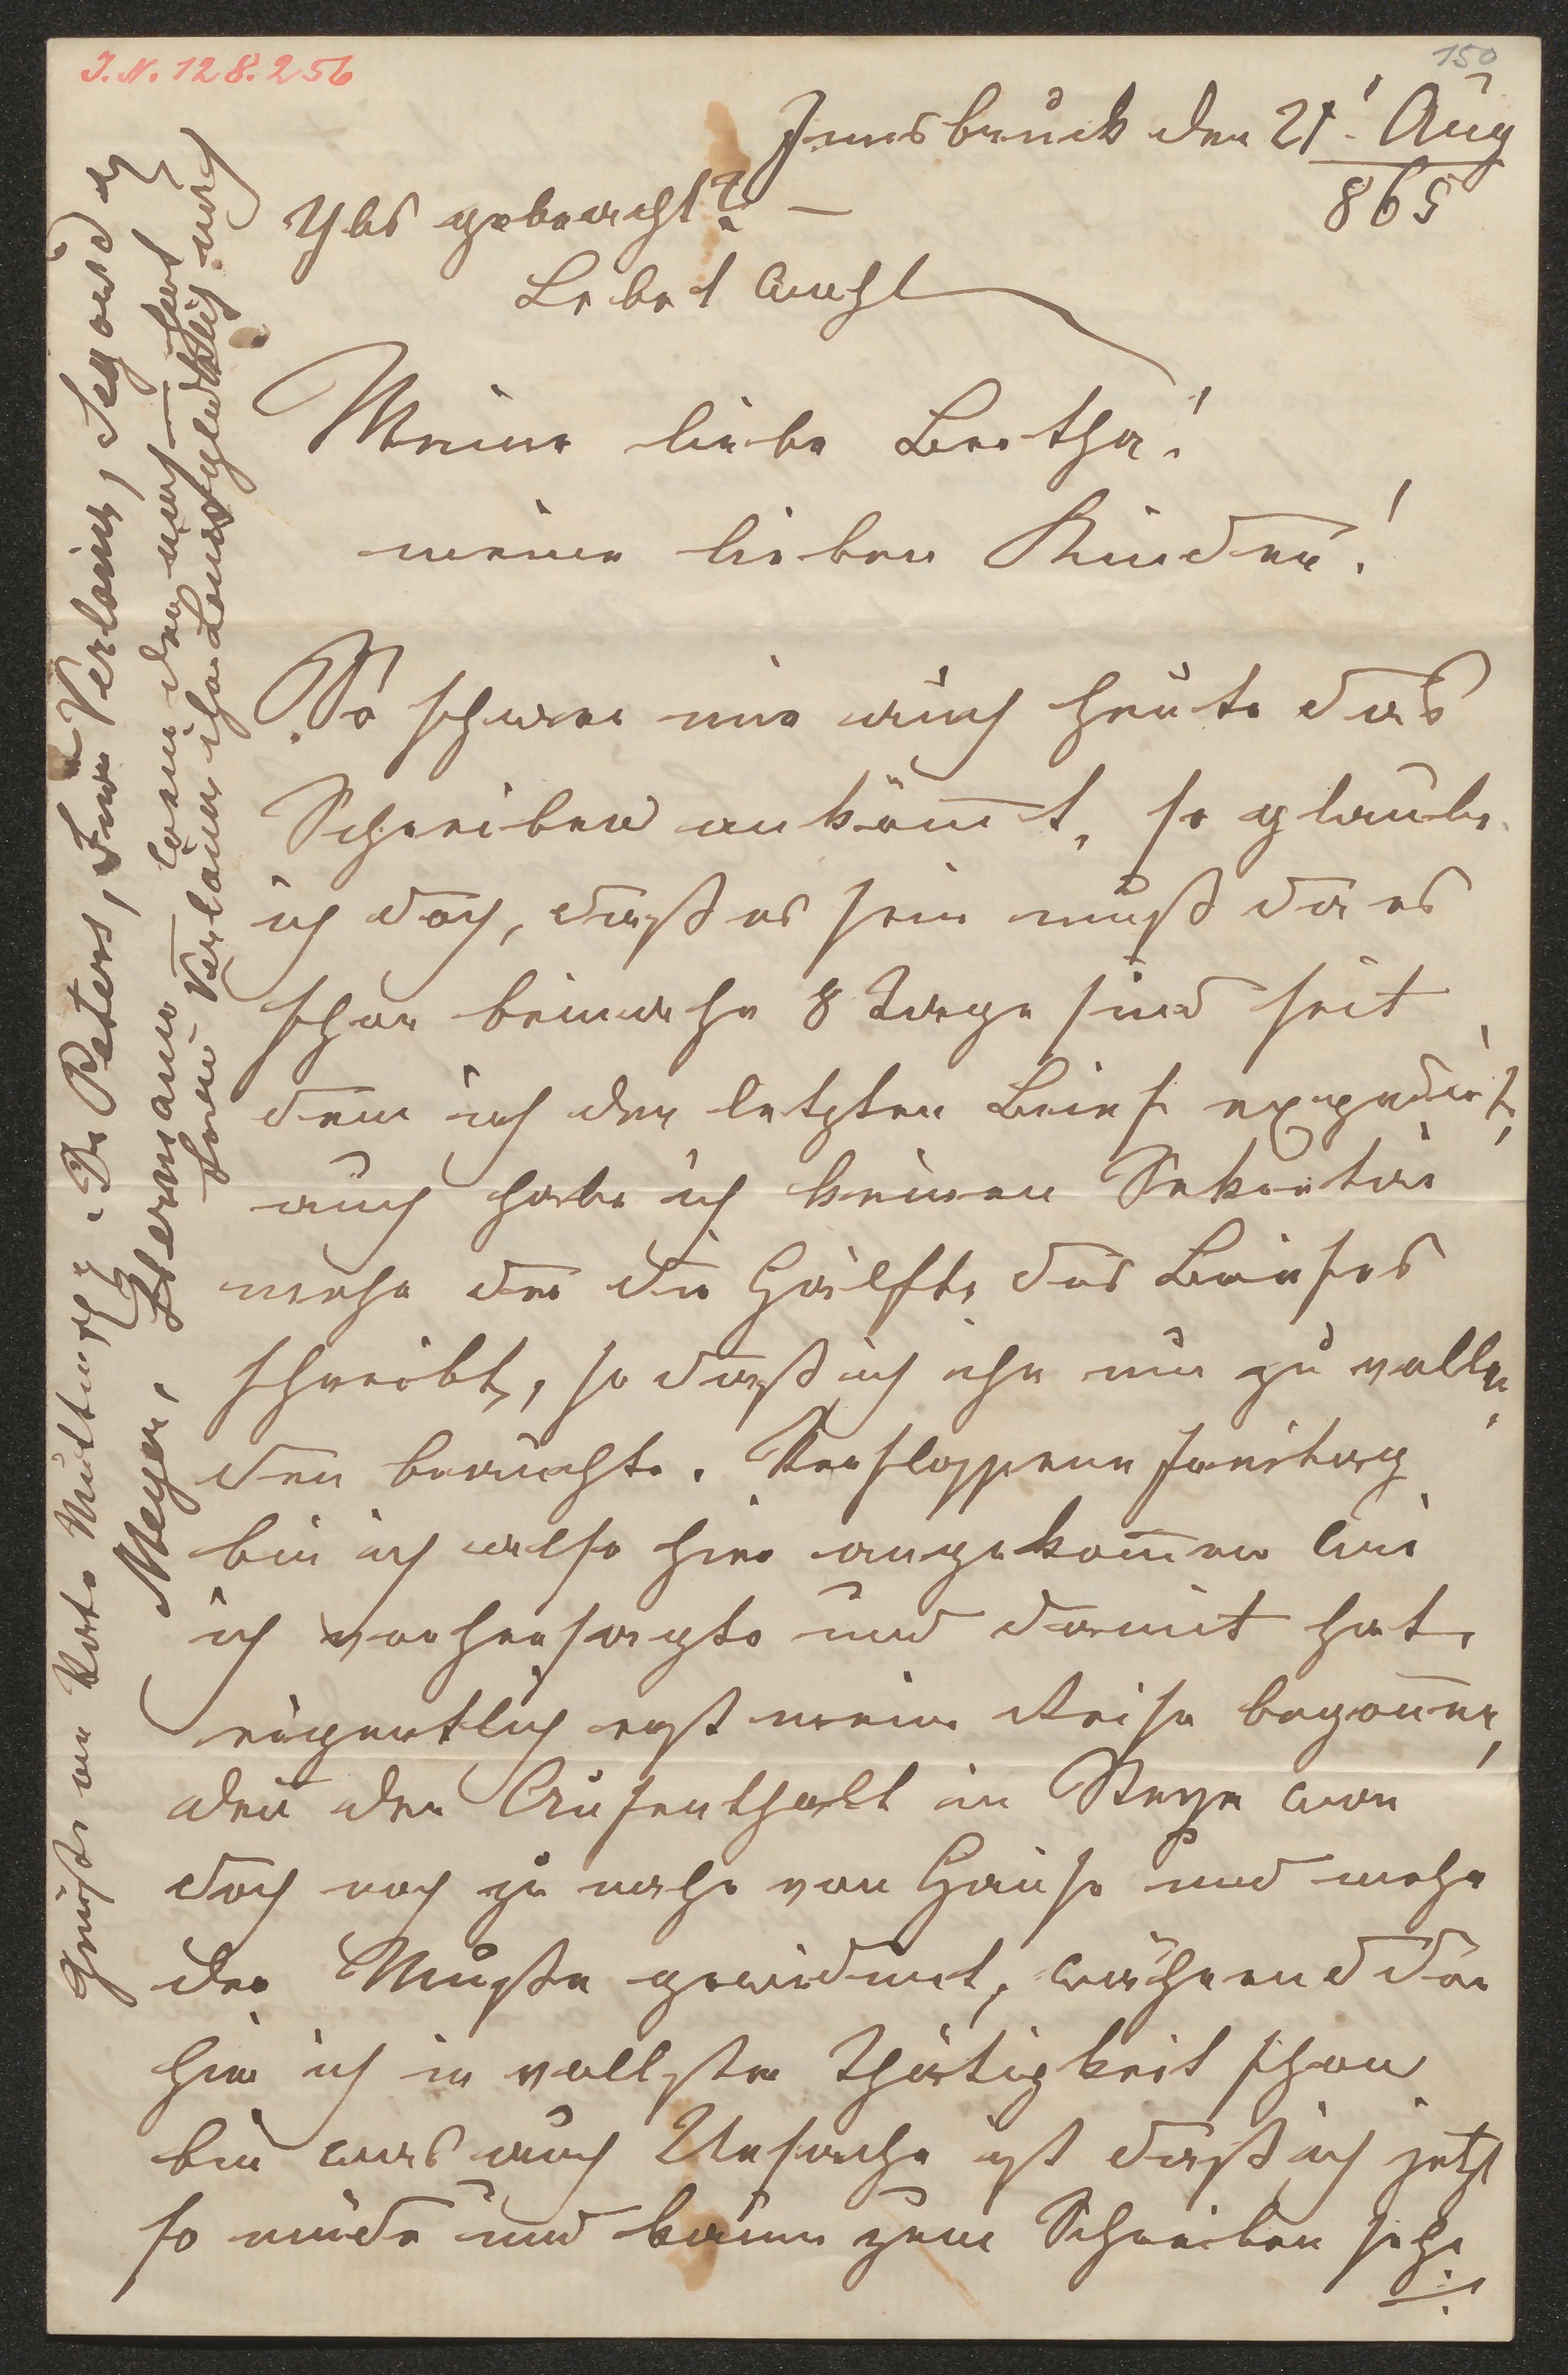 J.N. 128.256
150
Innsbruck den 21t. Aug
865
Ybs gebracht? —
Lebet wohl
Meine liebe Bertha!
meine lieben Kinder!
So schwer mir auch heute das
Schreiben ankömt, so glaube
ich doch, daß es sein muß da es
schon beinahe 8 Tage sind seit
dem ich den letzten Brief expedirt,
auch habe ich keinen Sekretär
mehr der die Hälfte des Briefes
schreibt, so daß ich ihn nur zu vollen
den brauchte. Verflossenen Freitag
bin ich also hier angekomen wie
ich vorhersagte und damit hat
eigentlich erst meine Reise begonen,
den der Aufenthalt in Steyr war
doch noch zu nahe von Hause und mehr
der Muße gewidmet, während der
hier ich in vollster Thätigkeit schon
bin was auch Ursache ist daß ich jetzt
so müde und kaum zum Schreiben sehe
./.
Grüße an Kath. Dr Peters, Frau Verlain, Segour
Meyer, Hermann
Frau Verlain ihr